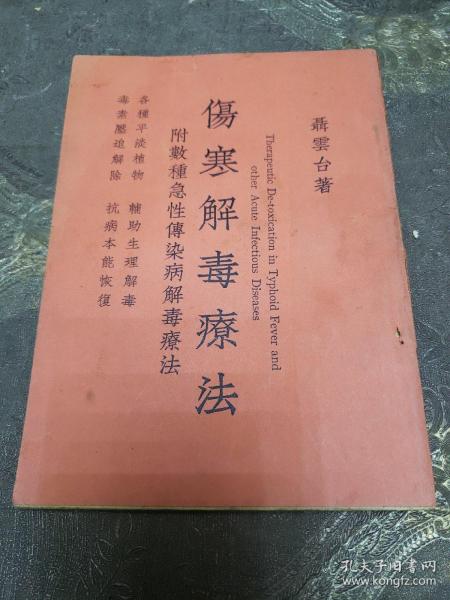 聶雲台著
Therapeutic De-toxication in Typhoid Fever and
other Acute Infectious Diseases
傷寒解毒療法
附數種急性傳染病解毒療法
各種平淡植物 輔助生理解毒
毒素壓迫解除 抗病本能恢復
孔夫子旧书网
www.kongfz.com